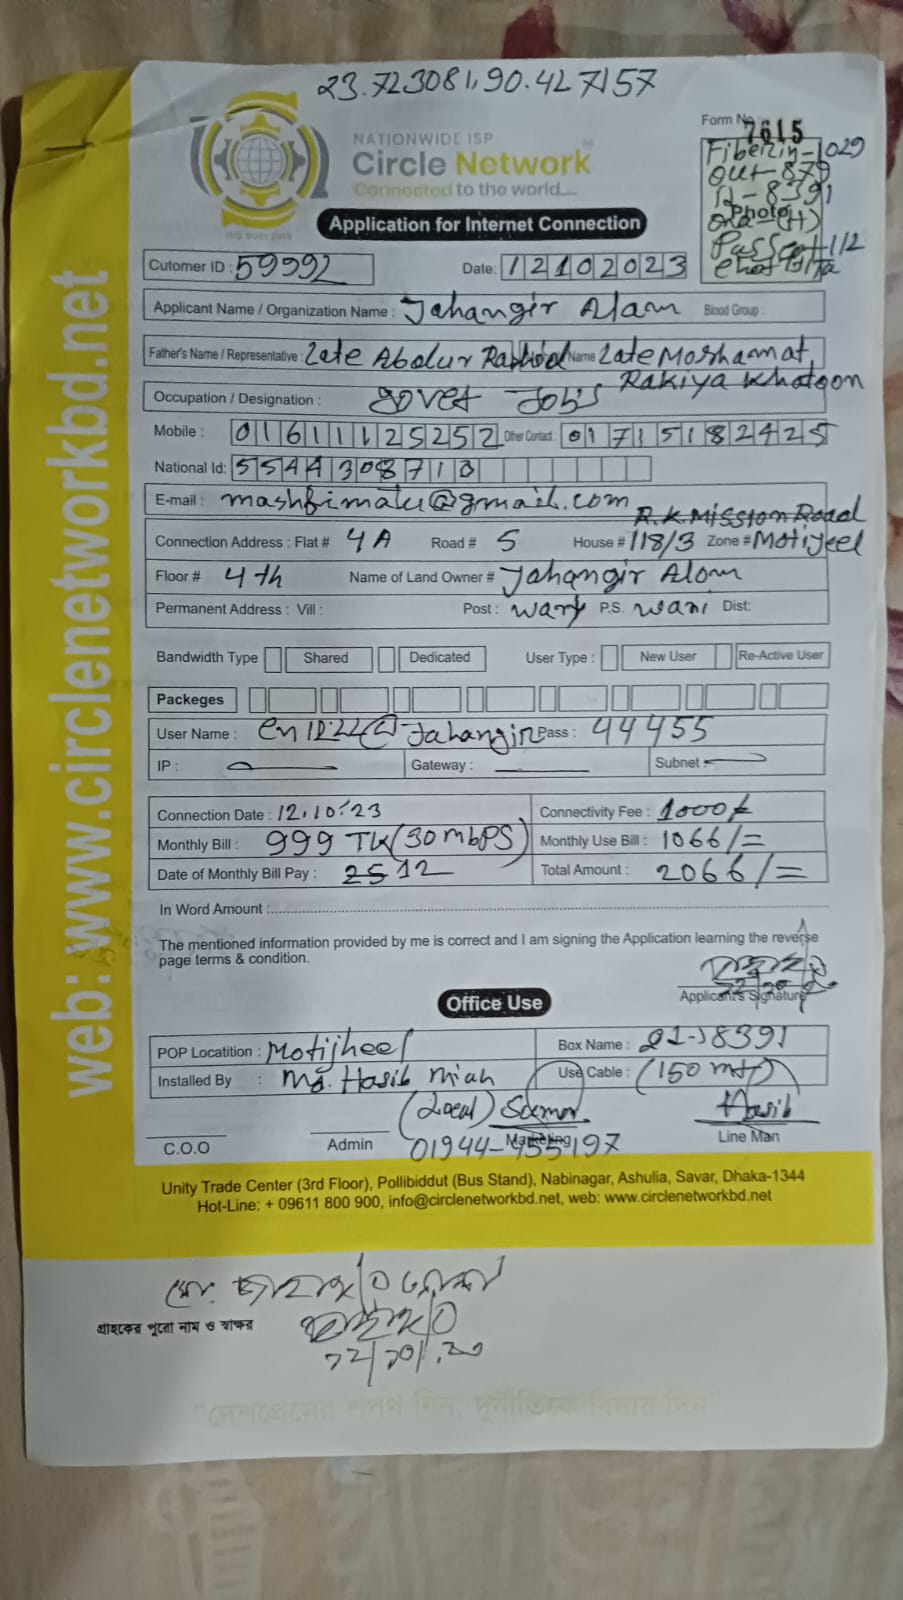 23.723081,90.427157
NATIONWIDE ISP
Circle Network
Connected to the world....
ISO 9001:2015
Form No. 7615
Fiber in-1029
out-879
12-8391
Photo
Onu-(H)
Application for Internet Connection
Cutomer ID : 59992
Date: 12102023
Applicant Name / Organization Name : Jahangir Alam Blood Group :
Father's Name / Representative : Late Abdur Rashid Name Late Moshamat
Rakiya Khatoon
Occupation / Designation : govet Jobs
Mobile : 01611125252 Other Contact : 01715182425
National Id: 5544308713
E-mail : mashfimatu@gmail.com
R.K. Mission Road
Connection Address : Flat # 4A Road # 5 House # 118/3 Zone # Motijeel
Floor # 4th Name of Land Owner # Jahangir Alom
Permanent Address : Vill : Post : wary P.S. wari Dist:
Bandwidth Type Shared Dedicated User Type : New User Re-Active User
Packeges
User Name : Jahangir Pass : 44455
IP : Gateway : Subnet
Connection Date : 12.10.23 Connectivity Fee : 1000/
Monthly Bill : 999 TK (30 mbps) Monthly Use Bill : 1066/=
Date of Monthly Bill Pay : 2512 Total Amount : 2066/=
In Word Amount :
The mentioned information provided by me is correct and I am signing the Application learning the reverse
page terms & condition.
Applicant's Signature
Office Use
POP Locatition : Motijheel Box Name : 02-18391
Installed By : Md. Hasib Miah Use Cable : (150 mtr)
(Local) Hasib
C.O.O Admin 01944-455197 Marketing Line Man
Unity Trade Center (3rd Floor), Pollibiddut (Bus Stand), Nabinagar, Ashulia, Savar, Dhaka-1344
Hot-Line: + 09611 800 900, info@circlenetworkbd.net, web: www.circlenetworkbd.net
web: www.circlenetworkbd.net
গ্রাহকের পুরো নাম ও স্বাক্ষর
"দেশপ্রেমের শপথ নিন, দুর্নীতিকে বিদায় দিন"